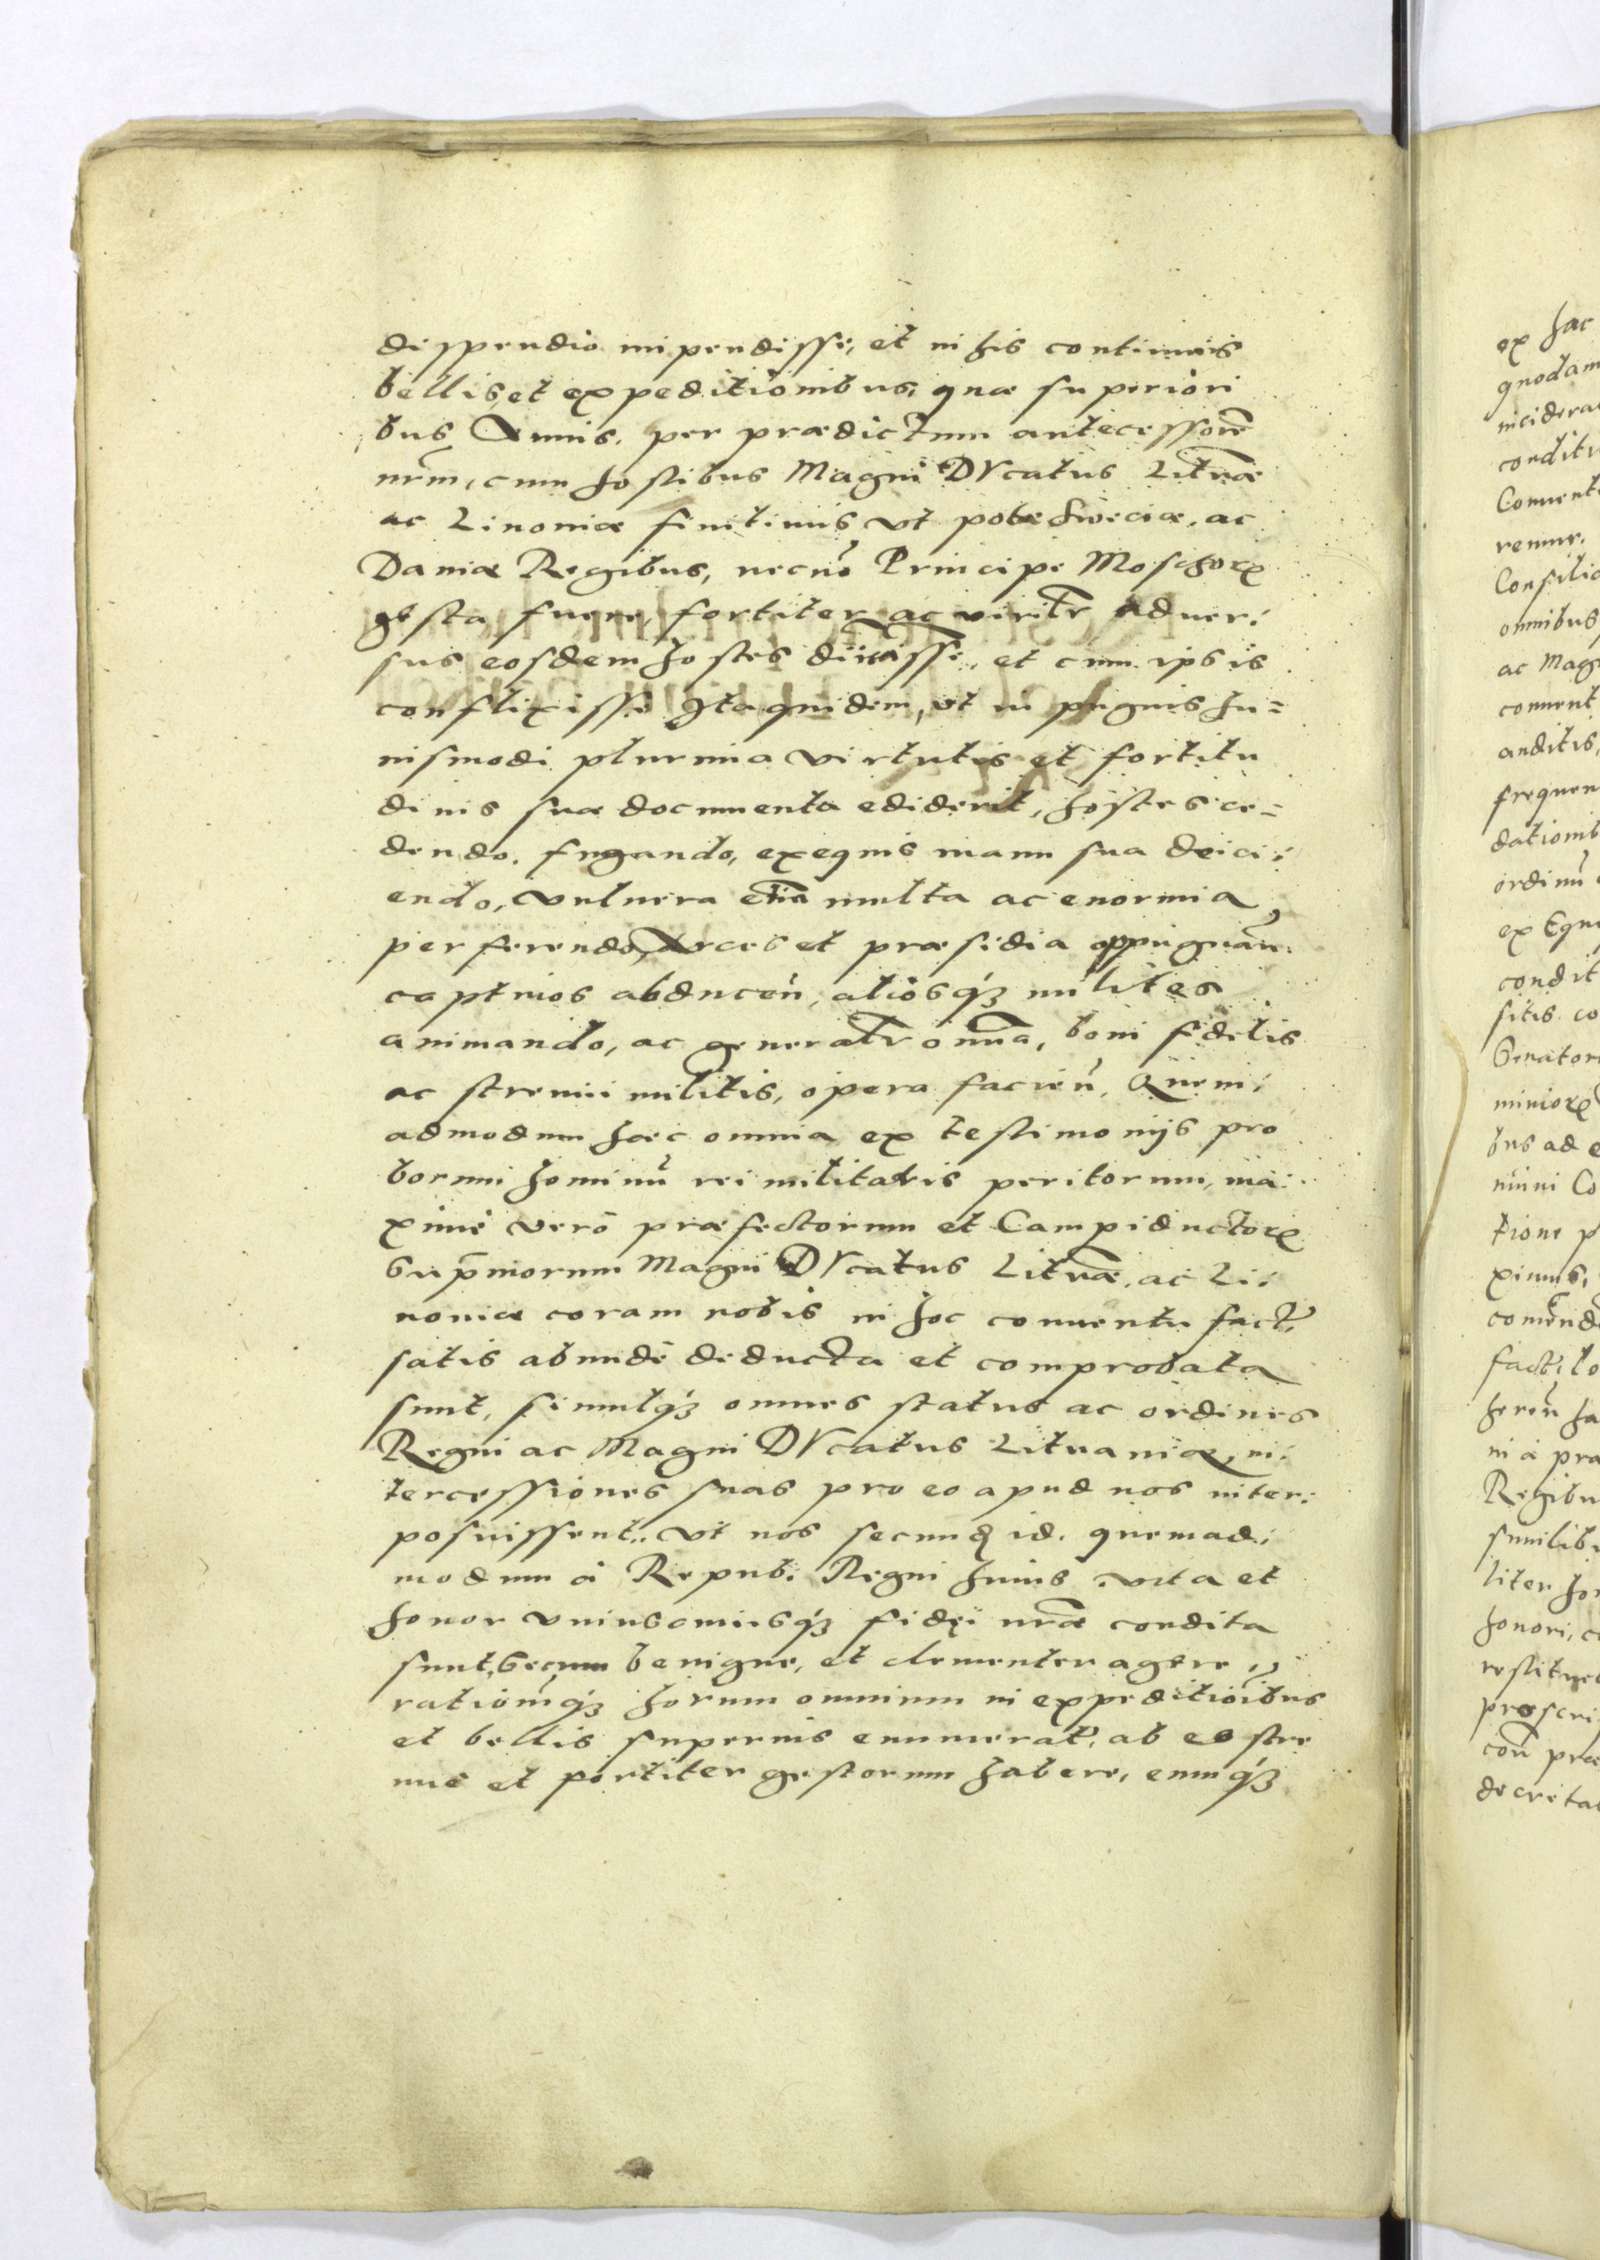 dispendio impendisse, et in his continuis
bellis et expeditionibus, quae superiori
bus Annis, per praedictum antecessorē
nr̄m, cum hostibus Magni DVcatus Litūae
ac Liuoniae finitimis vt pote Sweciae, ac
Daniae Regibus, necnō Principe Moschorꝝ
gesta fuere, fortiter ac virilr̄ aduer:
sus eosdem hostes dimicasse, et cum ipsis
conflixisse Ita quidem, vt in pugnis hu=
iusmodi plurima virtutis et fortitu
dinis suae documenta ediderit, hostes ce=
dendo, fugando, ex equis manu sua deici:
endo, vulnera etiā multa ac enormia,
perferendo, Arces et praesidia oppugnān:
captiuos abducen̄, aliosq́ȝ milites
animando, ac generalr̄ omīa, boni fidelis
ac strenui militis, opera facien̄, Quem:
admodum haec omnia ex testimonijs pro
borum hominū rei militaris peritorum, ma:
ximè verò praefectorum et Campiductorꝝ
Supr̄morum Magni DVcatus Litūae, ac Li:
uoniae coram nobis in hoc conuentu fact:
satis abundè deducta et comprobata
sunt, simulq́ȝ omnes status ac ordines
Regni ac Magni DVcatus Lituaniae, in:
tercessiones suas pro eo apud nos inter:
posuissent. Vt nos secund̄ id, quemad:
modum à Repub: Regni huius vita et
honor vniuscuiusq́ȝ fidei nr̄ae condita
sunt, Secum benigne, et clementer agere,
rationemq́ȝ horum omnium in expeditiōibus
et bellis superius enumerat: ab eo stre
nuè et fortiter gestorum habere, eumq́ȝ
ex hac
quodam
conditi
Conuent
remur.
Consilia
omnibus
ac Mag
conuent
auditis,
frequen
dationib
ordinū
ex Equ
condit
sitis co
Senator
miniorꝝ
bus ad e
mini Co
tione p
ximus,
facti, lo
heren̄ ha
ni à pra
Regibu
similib
liter ho
honori, c
restitue
proscri
con̄ prae
decreta